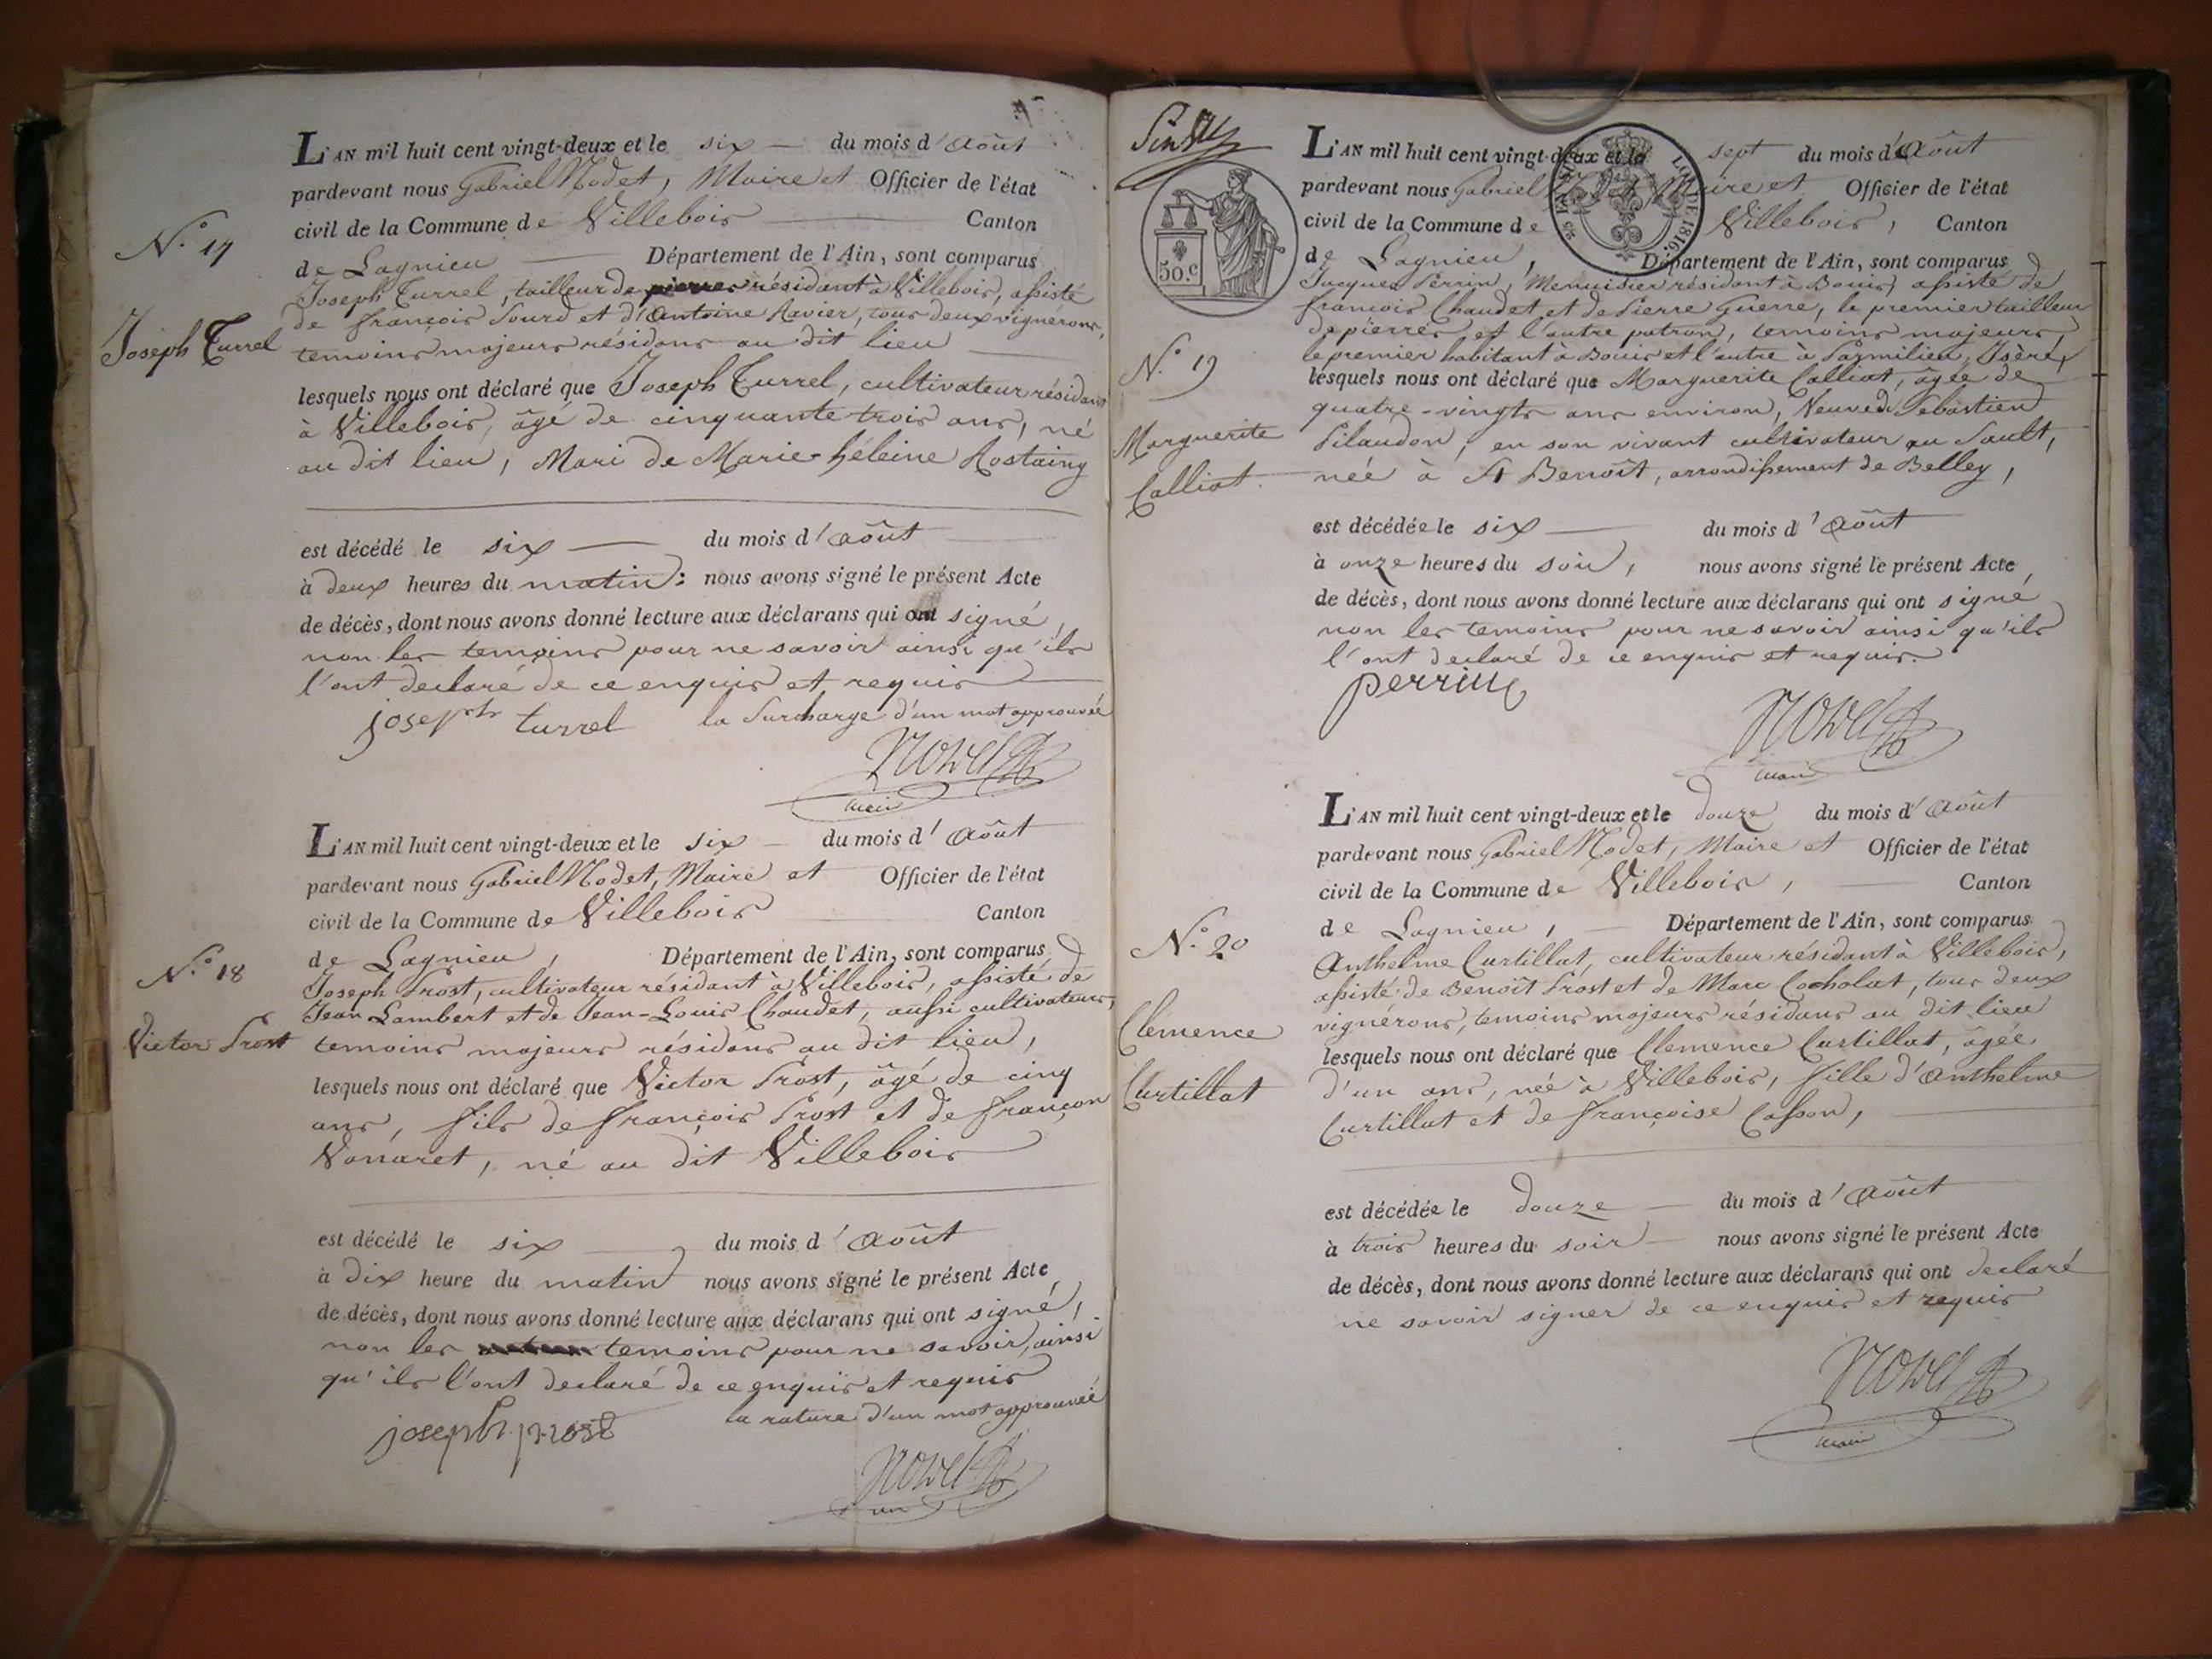 L'AN mil huit cent vingt-deux et le six du mois d'Août
pardevant nous Gabriel Nodet, Maire et Officier de l'état
civil de la Commune de Villebois Canton
N.° 17
de Lagnieu Département de l'Ain, sont comparus
Joseph Turrel, tailleur de pierres résidant à Villebois, assisté
de françois Sourd et d'Antoine Ravier, tous deux vignérons,
Joseph Turrel
temoins majeurs résidans au dit lieu
lesquels nous ont déclaré que Joseph Turrel, cultivateur résidant
à Villebois, âgé de cinquante trois ans, né
au dit lieu, Mari de Marie-héleine Rostaing
est décédé le six du mois d'août
à deux heures du matin; nous avons signé le présent Acte
de décès, dont nous avons donné lecture aux déclarans qui ont signé,
non les temoins pour ne savoir ainsi qu'ils
l'ont declaré de ce enquis et requis
joseph turrel la Surcharge d'un mot approuvée
Nodet
maire
L'AN mil huit cent vingt-deux et le six du mois d'Août
pardevant nous Gabriel Nodet, Maire et Officier de l'état
civil de la Commune de Villebois Canton
N.° 18
de Lagnieu, Département de l'Ain, sont comparus
Joseph Prost, cultivateur résidant à Villebois, assisté de
Jean Lambert et de Jean-Louis Chaudet, aussi cultivateurs,
Victor Prost
temoins majeurs résidans au dit lieu,
lesquels nous ont déclaré que Victor Prost, âgé de cinq
ans, fils de françois Prost et de françon
Vanaret, né au dit Villebois
est décédé le six du mois d'Août
à dix heure du matin nous avons signé le présent Acte
de décès, dont nous avons donné lecture aux déclarans qui ont signé,
non les temoins pour ne savoir, ainsi
qu'ils l'ont declaré de ce enquis et requis
la rature d'un mot approuvée
joseph prost
Nodet
L'AN mil huit cent vingt-deux et le sept du mois d'Août
pardevant nous Gabriel Nodet Maire et Officier de l'état
civil de la Commune de Villebois, Canton
LOI DE 1816.
50.c
de Lagnieu, Département de l'Ain, sont comparus
Jacques Perrin, Menuisier résidant à Bouis, assisté de
francois Chaudet et de Pierre Guerre, le premier tailleur
de pierres et l'autre patron, temoins majeurs,
N.° 19
le premier habitant à Bouis et l'autre à Parmilieu, Isère,
lesquels nous ont déclaré que Marguerite Calliat, âgée de
quatre-vingts ans environ, Veuve de Sebastien
Marguerite
Calliat
Pilaudon, en son vivant cultivateur au Sault,
née à St Benoît, arrondissement de Belley,
est décédée le six du mois d'Août
à onze heures du soir, nous avons signé le présent Acte,
de décès, dont nous avons donné lecture aux déclarans qui ont signé
non les temoins pour ne savoir ainsi qu'ils
l'ont declaré de ce enquis et requis.
perrin
Nodet
maire
L'AN mil huit cent vingt-deux et le douze du mois d'Août
pardevant nous Gabriel Nodet, Maire et Officier de l'état
civil de la Commune de Villebois, Canton
N.° 20
de Lagnieu, Département de l'Ain, sont comparus
Anthelme Curtillat, cultivateur résidant à Villebois,
assisté de Benoît Prost et de Marc Cocholat, tous deux
vignérons, temoins majeurs résidans au dit lieu
Clémence
Curtillat
lesquels nous ont déclaré que Clemence Curtillat, âgée
d'un ans, née à Villebois, fille d'Anthelme
Curtillat et de françoise Casson,
est décédée le douze du mois d'Août
à trois heures du soir nous avons signé le présent Acte
de décès, dont nous avons donné lecture aux déclarans qui ont declaré
ne savoir signer de ce enquis et requis
Nodet
maire